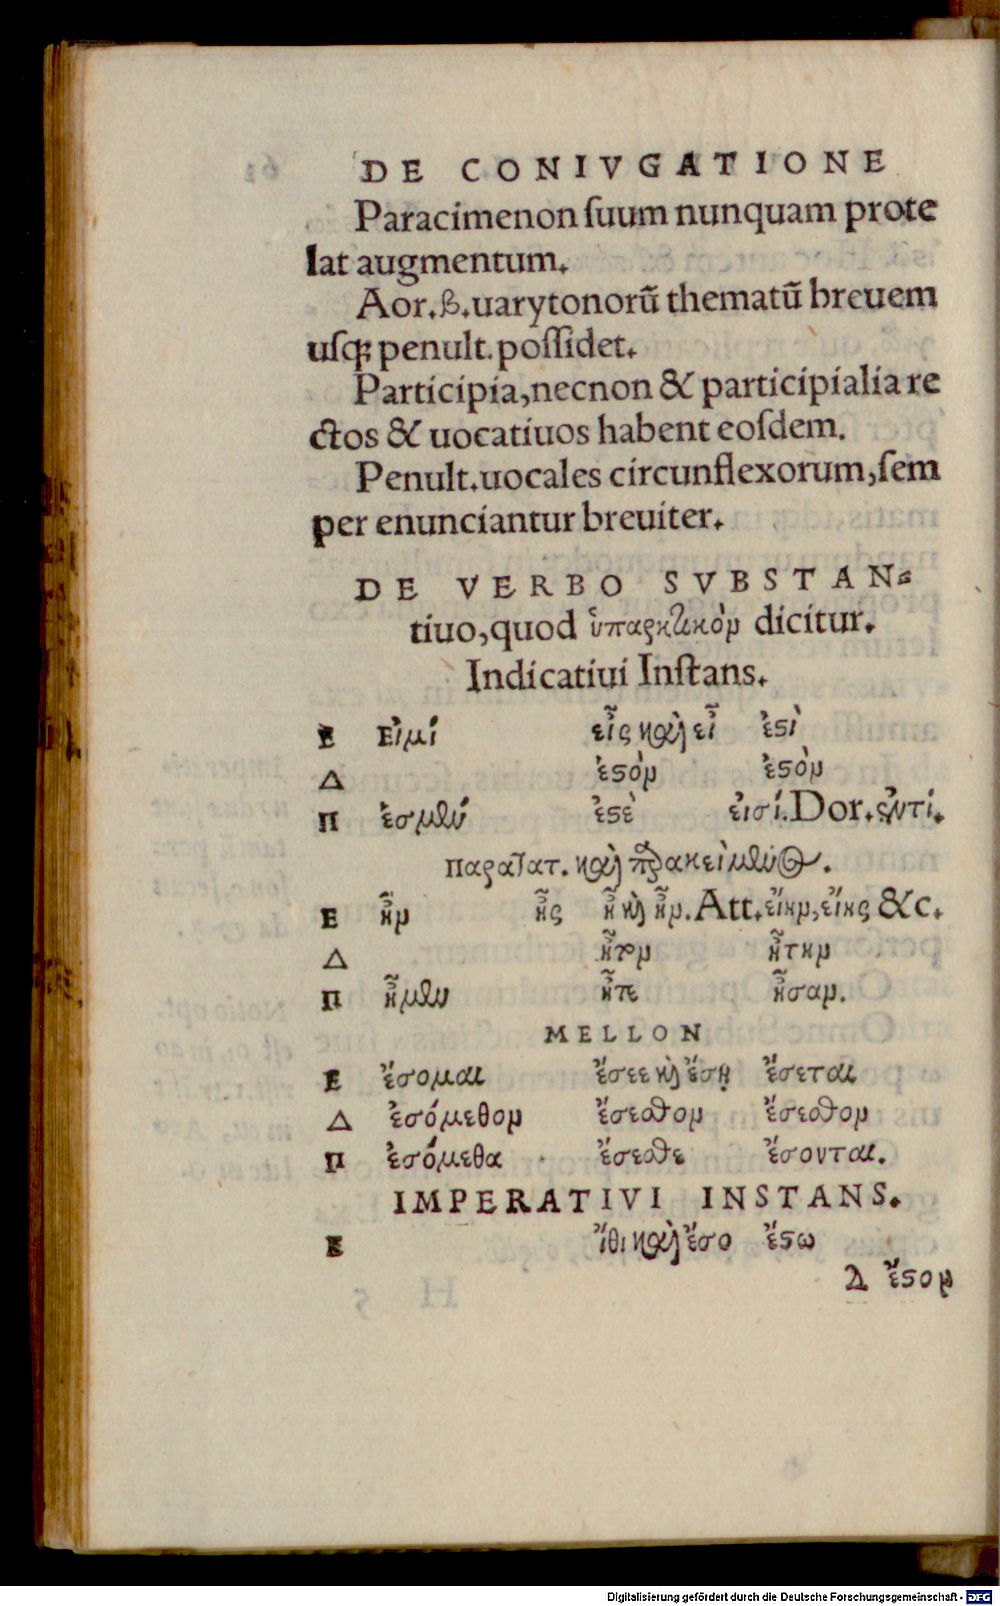 DE CONIVGATIONE
Paracimenon ſuum nunquam prote
lat augmentum.
Aor.β.uarytonorū thematū breuem
uſq; penult. poſſidet.
Participia, necnon & participialia re
ctos & uocatiuos habent eoſdem.
Penult. uocales circunflexorum, ſem
per enunciantur breuiter.
DE VERBO SVBSTAN-
tiuo, quod ὑπαρκτικὸν dicitur.
Indicatiui Inſtans.
Ε Εἰμί εἶς καὶ εἶ ἐστὶ
Δ ἐστὸν ἐστὸν
Π ἐσμέν ἐστὲ εἰσί. Dor. ἐντί.
Παρατατ. καὶ παρακείμενος.
Ε ἦν ἦς ἦ καὶ ἦν. Att. εἴην, εἴης &c.
Δ ἦτον ἤτην
Π ἦμεν ἦτε ἦσαν.
MELLON
Ε ἔσομαι ἔσεε καὶ ἔσῃ ἔσεται
Δ ἐσόμεθον ἔσεσθον ἔσεσθον
Π ἐσόμεθα ἔσεσθε ἔσονται.
IMPERATIVI INSTANS.
Ε ἴθι καὶ ἔσο ἔστω
Δ ἔστον
Digitalisierung gefördert durch die Deutsche Forschungsgemeinschaft - DFG